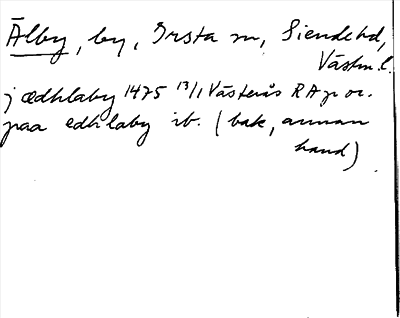 Älby, by, Irsta sn, Siende hd,
Västm. l.
j ædhlaby 1475 13/1 Västerås RA p or.
paa edhlaby ib. (bak, annan
hand)